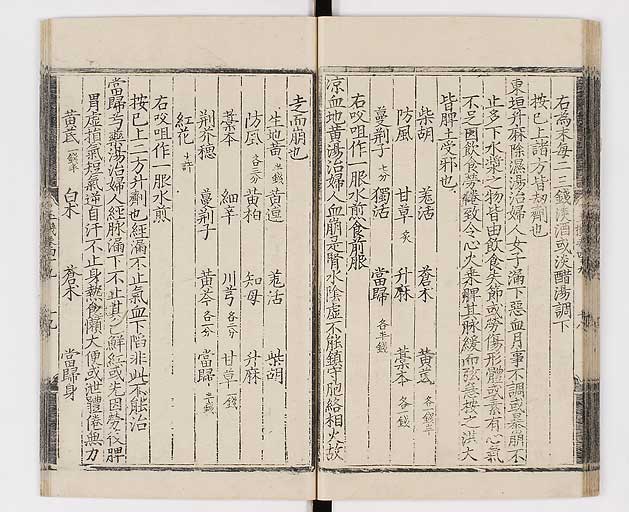 右為末每二三錢淡酒或淡醋湯調下
按已上諸方皆劫劑也
東垣升麻除濕湯治婦人女子漏下惡血月事不調或暴崩不
止多下水漿之物皆由飲食失節或勞傷形體或素有心氣
不足因飲食勞倦致令心火乘脾其脉緩而弦急按之洪大
皆脾土受邪也
柴胡 羗活 蒼术 黃芪 各一錢半
防風 甘草 炙 升麻 藁本 各一錢
蔓荆子 七分 獨活 當歸 各半錢
右㕮咀作一服水煎食前服
凉血地黃湯治婦人血崩是腎水隂虛不能鎮守胞絡相火故
走而崩也
生地黃 半錢 黃連 羗活 柴胡
防風 各三分 黃柏 知母 升麻
藁本 細辛 川芎 各二分 甘草 一錢
荆芥穗 蔓荆子 黃芩 各一分 當歸
紅花 少許
右㕮咀作一服水煎
按已上二方升劑也經漏不止氣血下陷非此不能治
當歸芍藥湯治婦人經脉漏下不止其色鮮紅或先因勞役脾
胃虛損氣短氣逆自汗不止身熱食懶大便或泄體倦無力
黃芪 白术 蒼术 當歸身